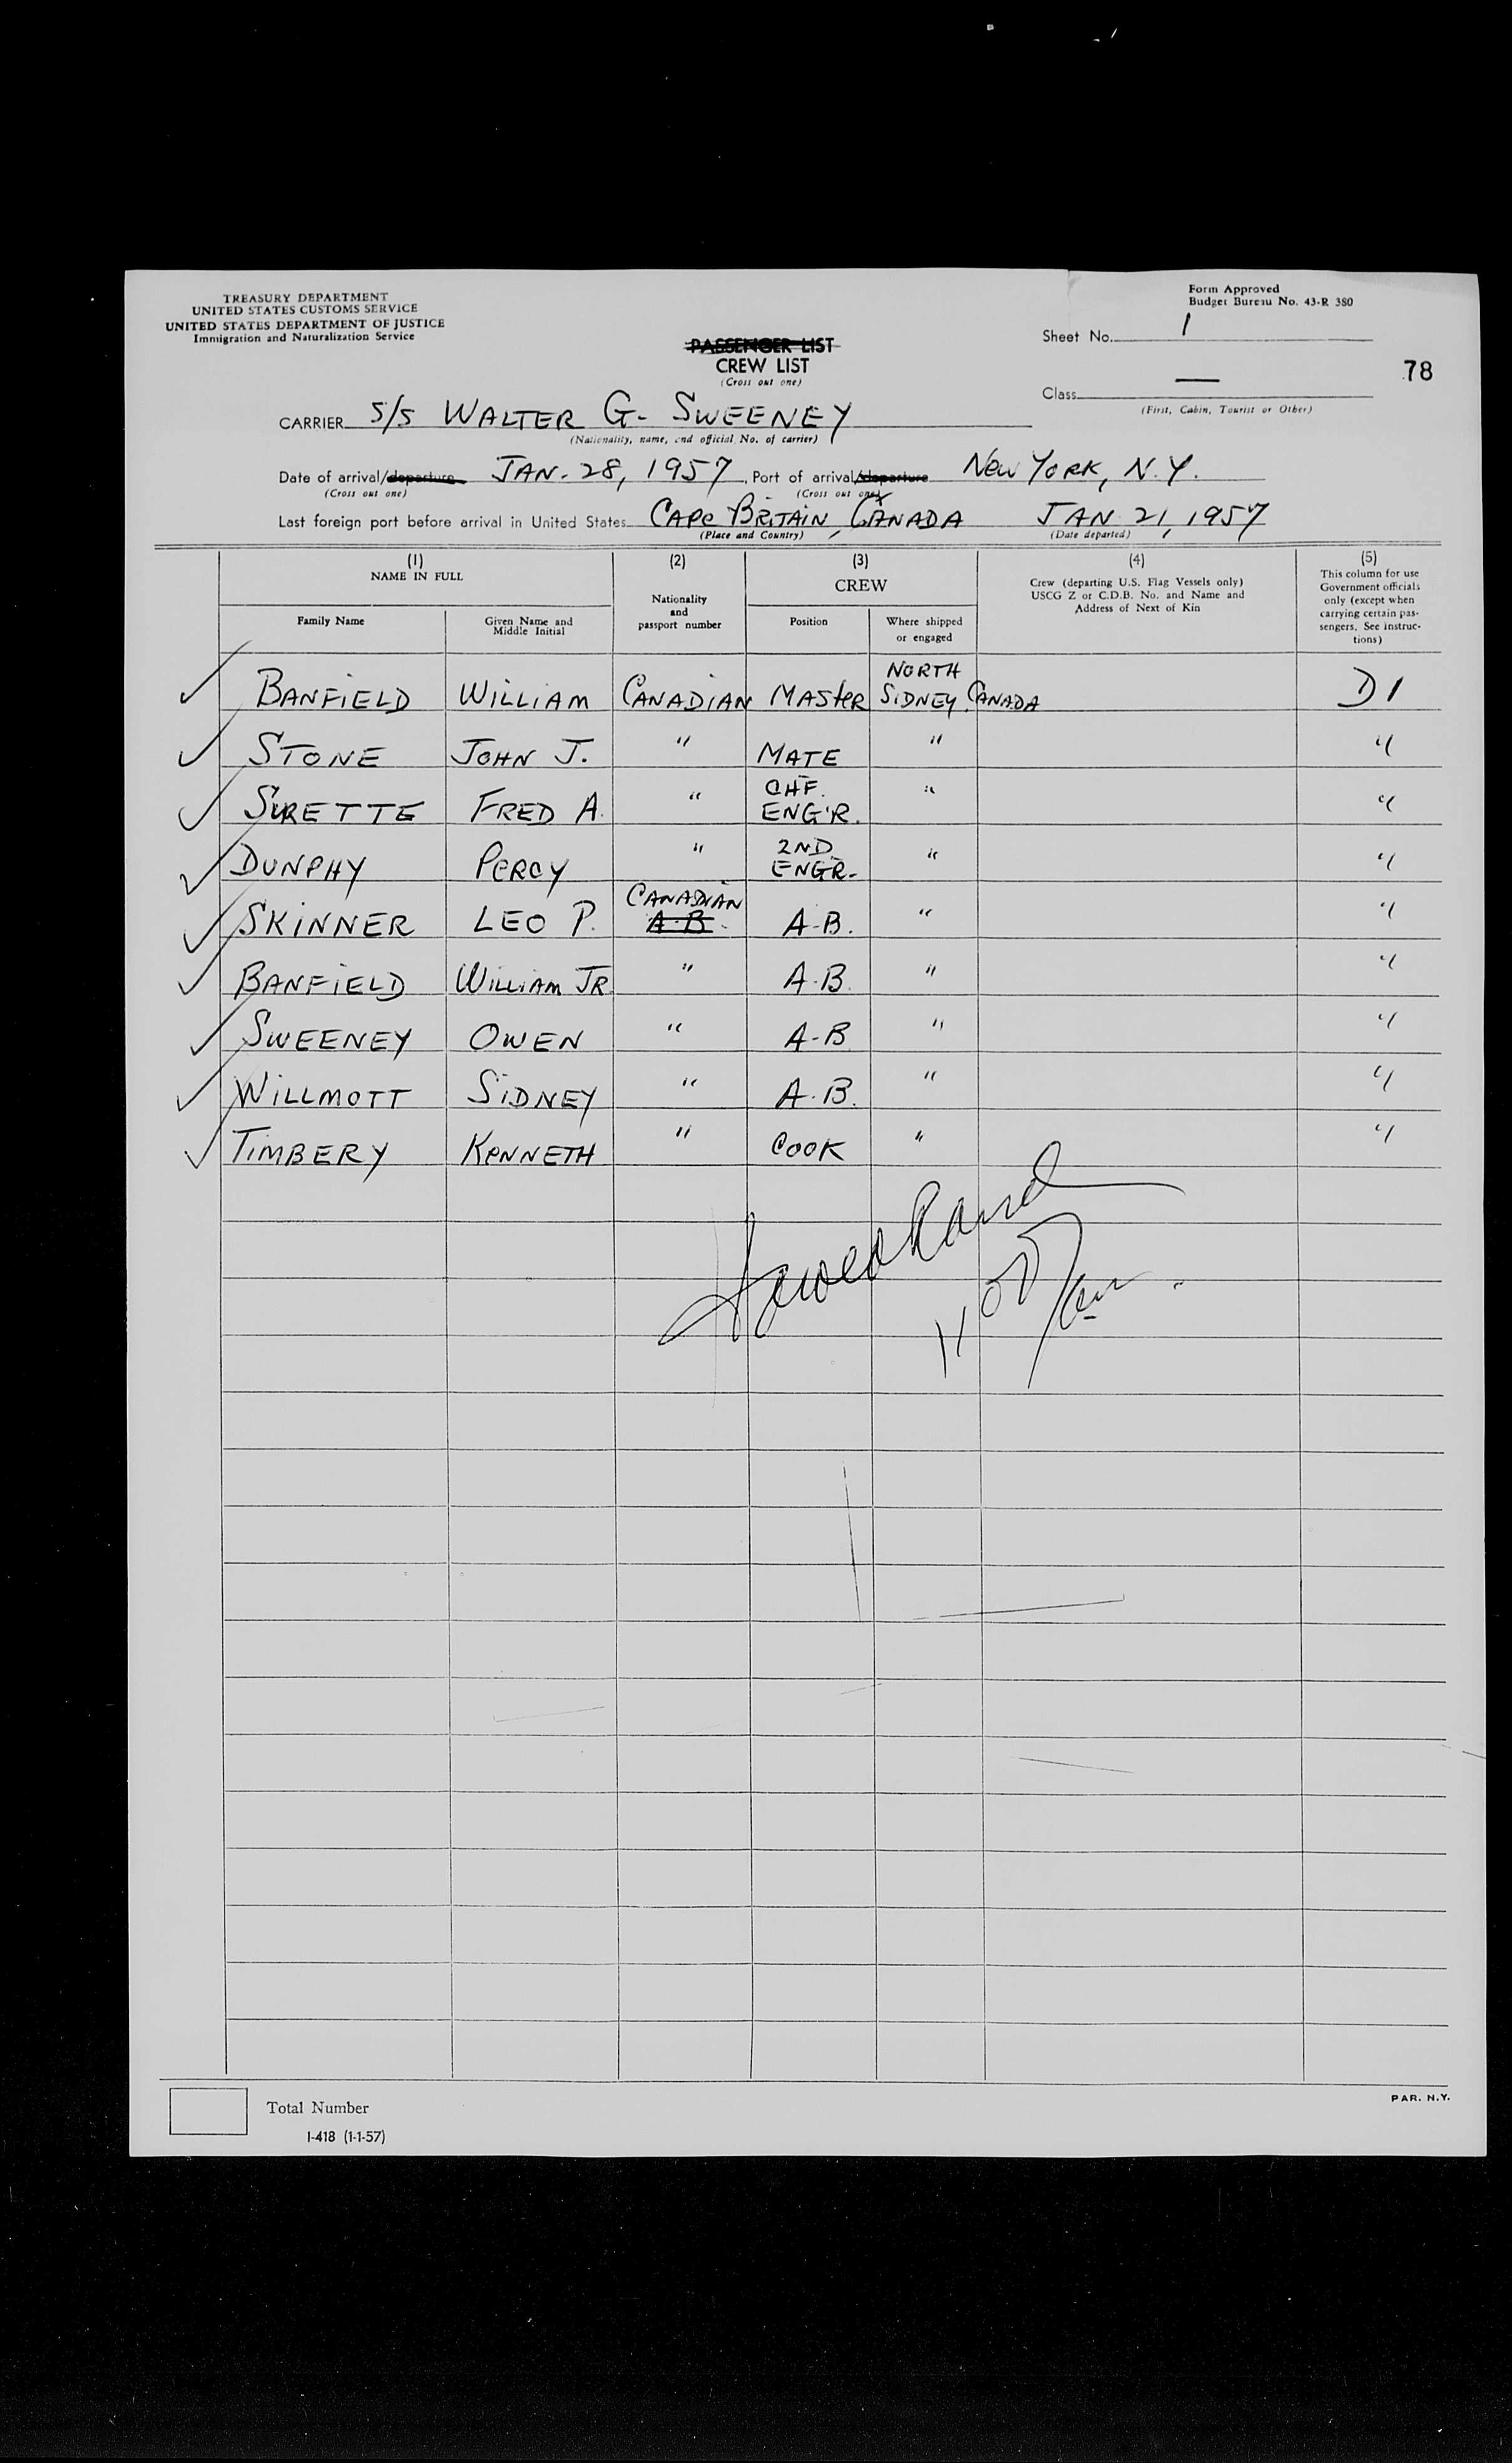 TREASURY DEPARTMENT
UNITED STATES CUSTOMS SERVICE
UNITED STATES DEPARTMENT OF JUSTICE
Immigration and Naturalization Service
Form Approved
Budget Bureau No. 43-R 380
Sheet No. 1
PASSENGER LIST
CREW LIST
(Cross out one)
78
Class —
(First, Cabin, Tourist or Other)
CARRIER S/S WALTER G. SWEENEY
(Nationality, name, and official No. of carrier)
Date of arrival/departure JAN. 28, 1957, Port of arrival/departure NEW YORK, N.Y.
(Cross out one) (Cross out one)
Last foreign port before arrival in United States CAPE BRITAIN, CANADA JAN 21, 1957
(Place and Country) (Date departed)
(1) NAME IN FULL
Family Name
Given Name and Middle Initial
(2)
Nationality and passport number
(3)
CREW
Position
Where shipped or engaged
(4)
Crew (departing U.S. Flag Vessels only)
USCG Z or C.D.B. No. and Name and
Address of Next of Kin
(5)
This column for use
Government officials
only (except when
carrying certain pas-
sengers. See instruc-
tions)
BANFIELD WILLIAM CANADIAN MASTER NORTH SIDNEY, CANADA D1
STONE JOHN J. " MATE " "
SURETTE FRED A. " CHF. ENG'R. " "
DUNPHY PERCY " 2ND ENGR. " "
SKINNER LEO P. CANADIAN A-B. A-B. " "
BANFIELD WILLIAM JR. " A-B. " "
SWEENEY OWEN " A-B " "
WILLMOTT SIDNEY " A.B. " "
TIMBERY KENNETH " COOK " "
Total Number
I-418 (1-1-57)
PAR. N.Y.